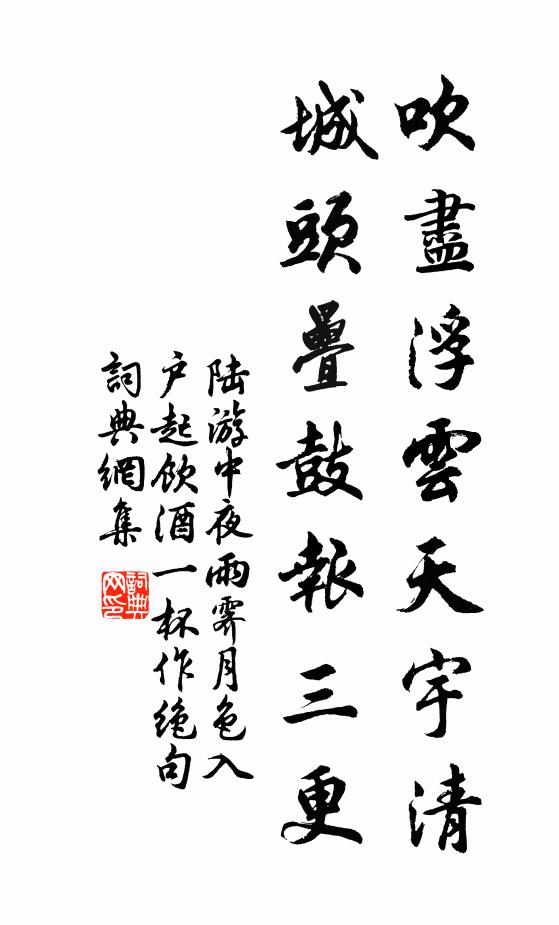 吹盡浮雲天宇清
城頭疊鼓報三更
陆游中夜雨霽月色入
户起飲酒一杯作绝句
詞典網集
詞典网印